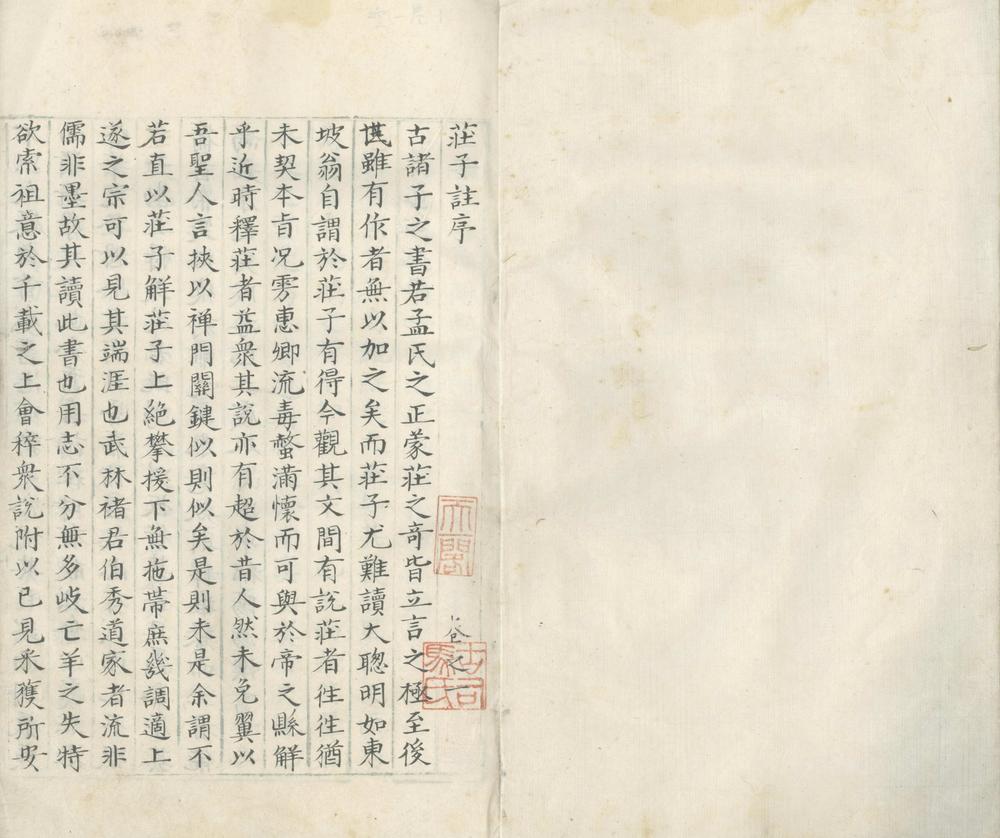 莊子註序
卷之一
古諸子之書若孟氏之正蒙莊之奇皆立言之極至後
世雖有作者無以加之矣而莊子尤難讀大聰明如東
坡翁自謂於莊子有得今觀其文間有說莊者徃徃猶
未契本旨况雱惠卿流毒螫滿懷而可與於帝之縣解
乎近時釋莊者益衆其說亦有超於昔人然未免翼以
吾聖人言挾以禅門關鍵似則似矣是則未是余謂不
若直以莊子解莊子上絶攀援下無拖帶庶幾調適上
遂之宗可以見其端涯也武林禇君伯秀道家者流非
儒非墨故其讀此書也用志不分無多岐亡羊之失特
欲索祖意於千載之上會稡衆説附以已見采獲所安